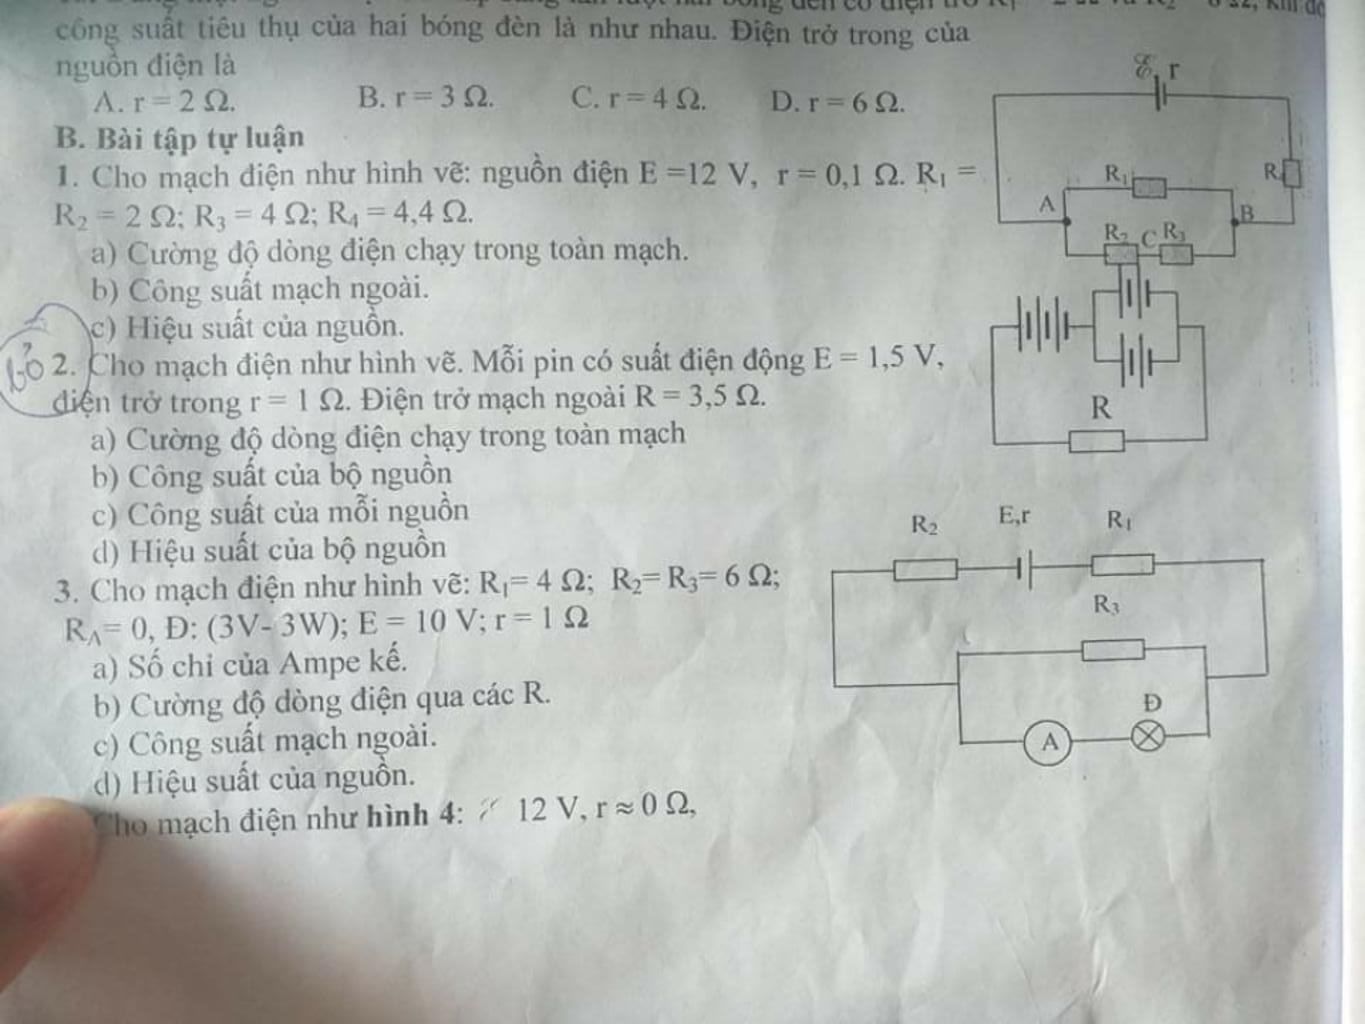 công suất tiêu thụ của hai bóng đèn là như nhau. Điện trở trong của
nguồn điện là
A. r = 2 Ω. B. r = 3 Ω. C. r = 4 Ω. D. r = 6 Ω.
B. Bài tập tự luận
1. Cho mạch điện như hình vẽ: nguồn điện E =12 V, r = 0,1 Ω. R₁ =
R₂ = 2 Ω; R₃ = 4 Ω; R₄ = 4,4 Ω.
a) Cường độ dòng điện chạy trong toàn mạch.
b) Công suất mạch ngoài.
c) Hiệu suất của nguồn.
bỏ
2. Cho mạch điện như hình vẽ. Mỗi pin có suất điện động E = 1,5 V,
điện trở trong r = 1 Ω. Điện trở mạch ngoài R = 3,5 Ω.
a) Cường độ dòng điện chạy trong toàn mạch
b) Công suất của bộ nguồn
c) Công suất của mỗi nguồn
d) Hiệu suất của bộ nguồn
3. Cho mạch điện như hình vẽ: R₁= 4 Ω; R₂= R₃= 6 Ω;
R_A= 0, Đ: (3V- 3W); E = 10 V; r = 1 Ω
a) Số chỉ của Ampe kế.
b) Cường độ dòng điện qua các R.
c) Công suất mạch ngoài.
d) Hiệu suất của nguồn.
Cho mạch điện như hình 4: 12 V, r ≈ 0 Ω,
ℰ, r
R₁
A
B
R₂ C R₃
R
R₂ E,r R₁
R₃
Đ
A